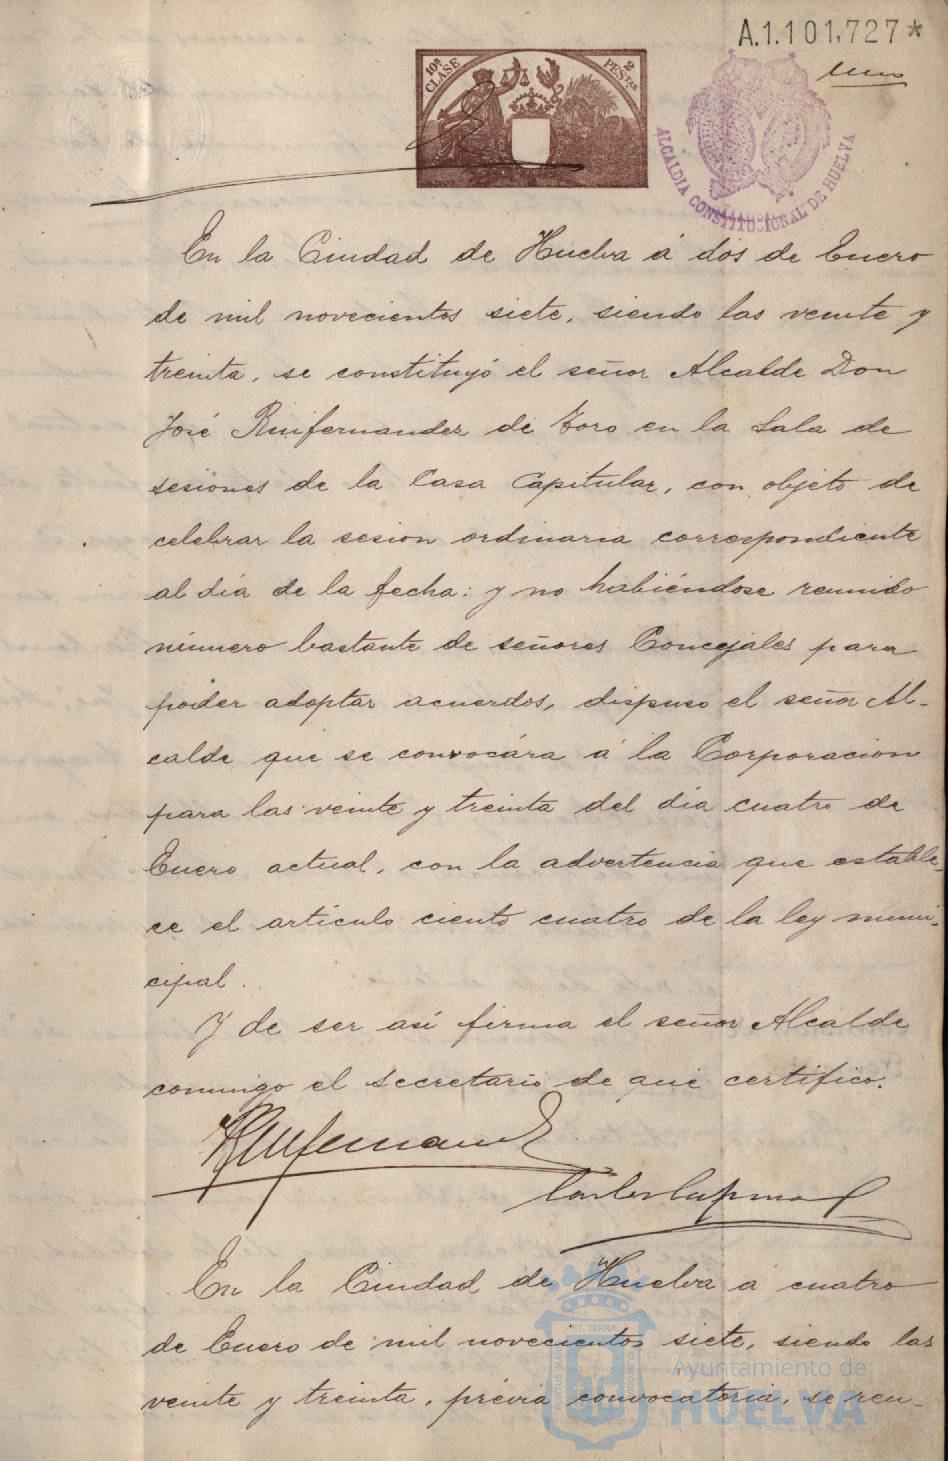 A.1.101,727*
10ª CLASE
2 PESTAS
uno
ALCALDIA CONSTITUCIONAL DE HUELVA
En la Ciudad de Huelva á dos de Enero
de mil novecientos siete, siendo las veinte y
treinta, se constituyó el señor Alcalde Don
José Ruifernandez de Toro en la Sala de
sesiones de la Casa Capitular, con objeto de
celebrar la sesion ordinaria correspondiente
al día de la fecha: y no habiéndose reunido
número bastante de señores Concejales para
poder adoptar acuerdos, dispuso el señor Al-
calde que se convocára á la Corporacion
para las veinte y treinta del dia cuatro de
Enero actual, con la advertencia que estable-
ce el artículo ciento cuatro de la ley muni-
cipal.
Y de ser así firma el señor Alcalde
conmigo el secretario de que certifico.
Ruifernandez
En la Ciudad de Huelva a cuatro
de Enero de mil novecientos siete, siendo las
veinte y treinta, prévia convocatoria, se reu-
Ayuntamiento de
HUELVA